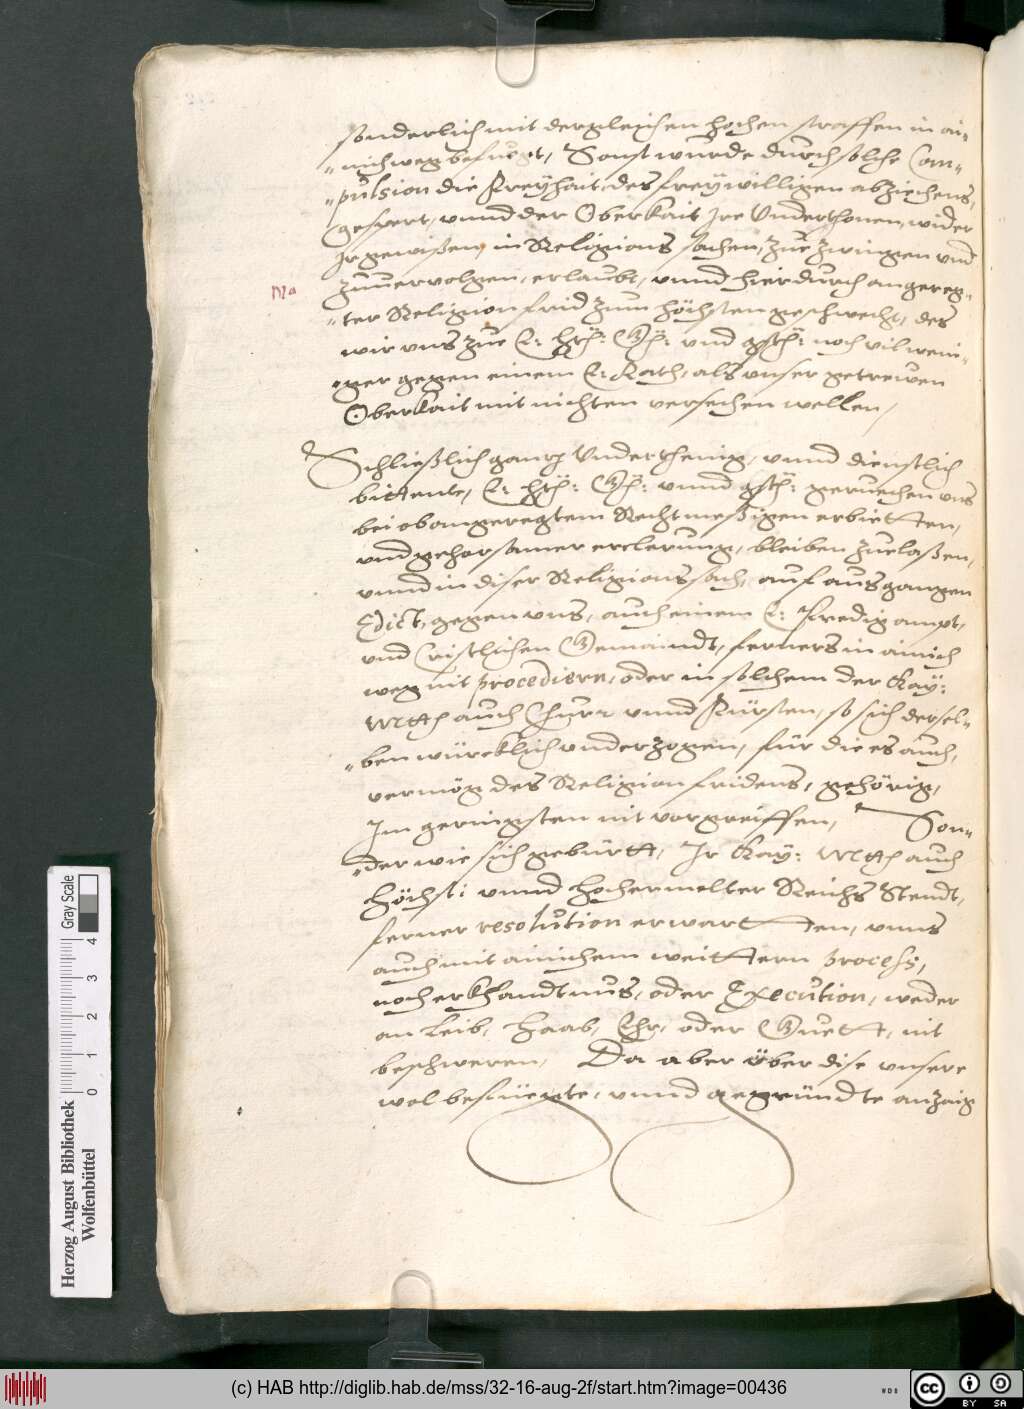 sonderlich mit dergleichen hochen straffen in ai-
nich weg befuegt, Sonst wurde durch solche Com-
pulsion die Freyhait, des freywilligen abziehens,
gespert, vnnd der Oberkait Jre Vnderthonen, wider
Jr gewißen, in Religions sachen, zue zwingen vnd
zuuervolgen, erlaubt, vnnd hierdurch angereg-
Na
ter Religion frid zum höchsten geschwecht, des
wir vns zue E: hrt: G: vnd gst: noch vil weni-
ger gegen einem E: Rath, als vnser getrewen
Oberkait mit nichten versechen wellen,
Schließlich gantz Vnderthenig, vnnd dienstlich
bittente, E: hrt: G: vnnd gst: geruechen vns
bei obangeregtem Rechtmeßigen erbietten,
vnd gehorsamer erclerung, bleiben zuelaßen,
vnnd in diser Religions sach, auf ausgangen
Edict, gegen vns, auch einem E: Predig ampt,
vnd Cristlichen Gemaindt, ferners in ainich
weg nit procediern, oder in solchem der Kay:
Mtt: auch Chur: vnnd Fürsten, so sich dersel-
ben würcklich vnderzogen, für die es auch,
vermög des Religion fridens, gehörig,
Jm geringsten nit vorgreiffen, Son-
der wie sich gebürtt, Jr Kay: Mtt: auch
Höchst: vnnd hochermelter Reichs Stendt,
ferner resolution erwartten, vnns
auch mit ainichem weittern process,
noch erkhandtnus, oder Execution, weder
an Leib, Haab, Ehr, oder Guett, nit
beschweren, Da aber über dise vnsere
wol befüegte, vnnd gegründte anzaig
Gray Scale
0 1 2 3 4
Herzog August Bibliothek
Wolfenbüttel
(c) HAB http://diglib.hab.de/mss/32-16-aug-2f/start.htm?image=00436
WDB
CC BY SA